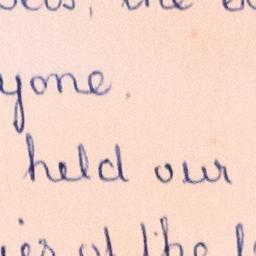 the
yone.
held our
of the